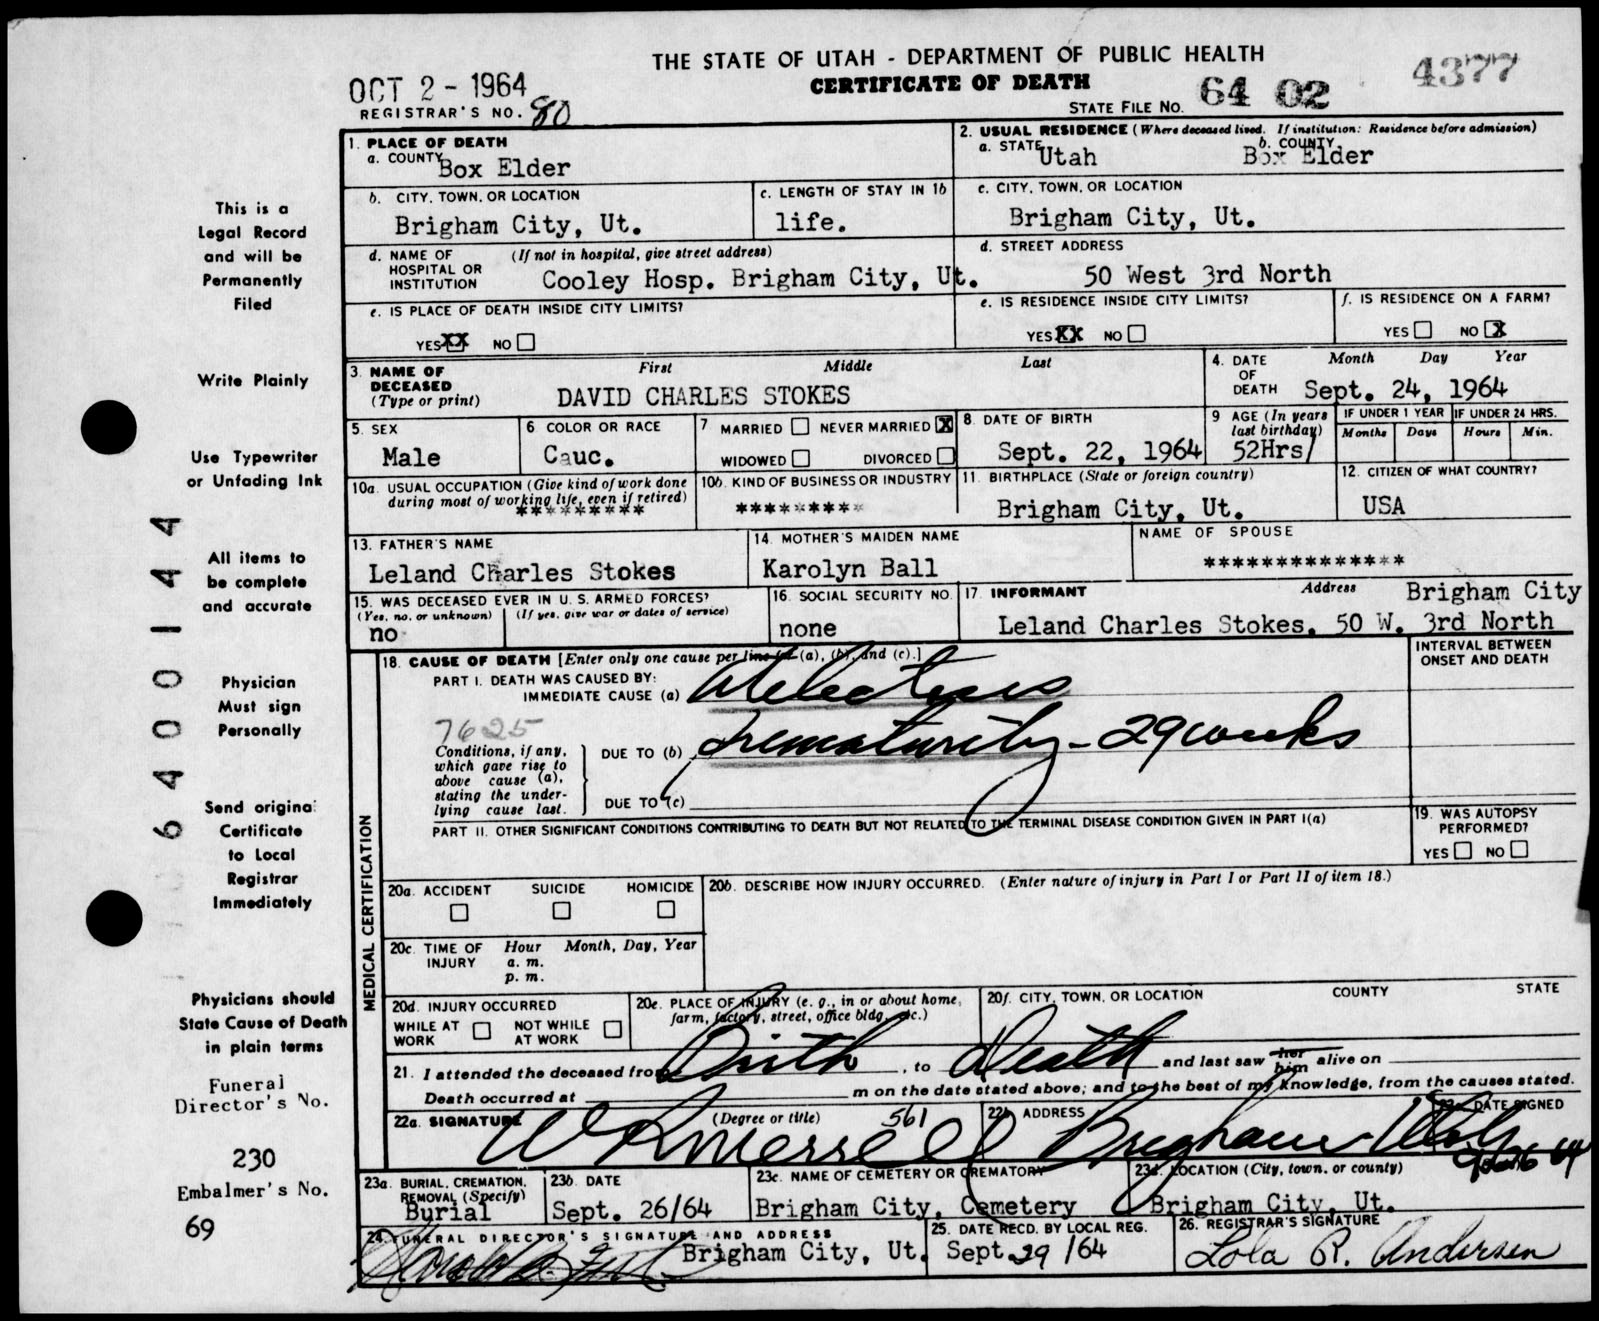 THE STATE OF UTAH - DEPARTMENT OF PUBLIC HEALTH
CERTIFICATE OF DEATH
OCT 2 - 1964
REGISTRAR'S NO. 80
STATE FILE NO. 64 02 4377
1. PLACE OF DEATH
a. COUNTY Box Elder
2. USUAL RESIDENCE (Where deceased lived. If institution: Residence before admission)
a. STATE Utah b. COUNTY Box Elder
b. CITY, TOWN, OR LOCATION
Brigham City, Ut.
c. LENGTH OF STAY IN 1b
life.
c. CITY, TOWN, OR LOCATION
Brigham City, Ut.
d. NAME OF HOSPITAL OR INSTITUTION (If not in hospital, give street address)
Cooley Hosp. Brigham City, Ut.
d. STREET ADDRESS
50 West 3rd North
e. IS PLACE OF DEATH INSIDE CITY LIMITS?
YES XX NO
e. IS RESIDENCE INSIDE CITY LIMITS?
YES XX NO
f. IS RESIDENCE ON A FARM?
YES NO X
3. NAME OF DECEASED (Type or print) First Middle Last
DAVID CHARLES STOKES
4. DATE OF DEATH Month Day Year
Sept. 24, 1964
5. SEX
Male
6 COLOR OR RACE
Cauc.
7 MARRIED NEVER MARRIED X
WIDOWED DIVORCED
8. DATE OF BIRTH
Sept. 22, 1964
9 AGE (In years last birthday)
52Hrs/
IF UNDER 1 YEAR IF UNDER 24 HRS.
Months Days Hours Min.
10a. USUAL OCCUPATION (Give kind of work done during most of working life, even if retired)
*********
10b. KIND OF BUSINESS OR INDUSTRY
*********
11. BIRTHPLACE (State or foreign country)
Brigham City, Ut.
12. CITIZEN OF WHAT COUNTRY?
USA
13. FATHER'S NAME
Leland Charles Stokes
14. MOTHER'S MAIDEN NAME
Karolyn Ball
NAME OF SPOUSE
**************
15. WAS DECEASED EVER IN U. S. ARMED FORCES?
(Yes, no, or unknown) (If yes, give war or dates of service)
no
16. SOCIAL SECURITY NO.
none
17. INFORMANT Address Brigham City
Leland Charles Stokes, 50 W. 3rd North
18. CAUSE OF DEATH [Enter only one cause per line for (a), (b), and (c).]
INTERVAL BETWEEN ONSET AND DEATH
PART I. DEATH WAS CAUSED BY:
IMMEDIATE CAUSE (a) Atelectasis
7625
Conditions, if any, which gave rise to above cause (a), stating the underlying cause last.
DUE TO (b) Prematurity - 29 weeks
DUE TO (c)
PART II. OTHER SIGNIFICANT CONDITIONS CONTRIBUTING TO DEATH BUT NOT RELATED TO THE TERMINAL DISEASE CONDITION GIVEN IN PART I(a)
19. WAS AUTOPSY PERFORMED?
YES NO
MEDICAL CERTIFICATION
20a. ACCIDENT SUICIDE HOMICIDE
20b. DESCRIBE HOW INJURY OCCURRED. (Enter nature of injury in Part I or Part II of item 18.)
20c. TIME OF INJURY Hour Month, Day, Year
a. m.
p. m.
20d. INJURY OCCURRED
WHILE AT WORK NOT WHILE AT WORK
20e. PLACE OF INJURY (e. g., in or about home, farm, factory, street, office bldg., etc.)
20f. CITY, TOWN, OR LOCATION COUNTY STATE
21. I attended the deceased from Birth, to Death and last saw her him alive on
Death occurred at m on the date stated above; and to the best of my knowledge, from the causes stated.
22a. SIGNATURE (Degree or title) 561
W R Merrell
22b ADDRESS
Brigham Utah
22c. DATE SIGNED
9-26 64
23a. BURIAL, CREMATION, REMOVAL (Specify)
Burial
23b. DATE
Sept. 26/64
23c. NAME OF CEMETERY OR CREMATORY
Brigham City, Cemetery
23d. LOCATION (City, town, or county)
Brigham City, Ut.
24. FUNERAL DIRECTOR'S SIGNATURE AND ADDRESS
Brigham City, Ut.
25. DATE RECD. BY LOCAL REG.
Sept. 29 /64
26. REGISTRAR'S SIGNATURE
Lola R. Andersen
This is a
Legal Record
and will be
Permanently
Filed
Write Plainly
Use Typewriter
or Unfading Ink
All items to
be complete
and accurate
Physician
Must sign
Personally
Send original
Certificate
to Local
Registrar
Immediately
Physicians should
State Cause of Death
in plain terms
Funeral
Director's No.
230
Embalmer's No.
69
64000144